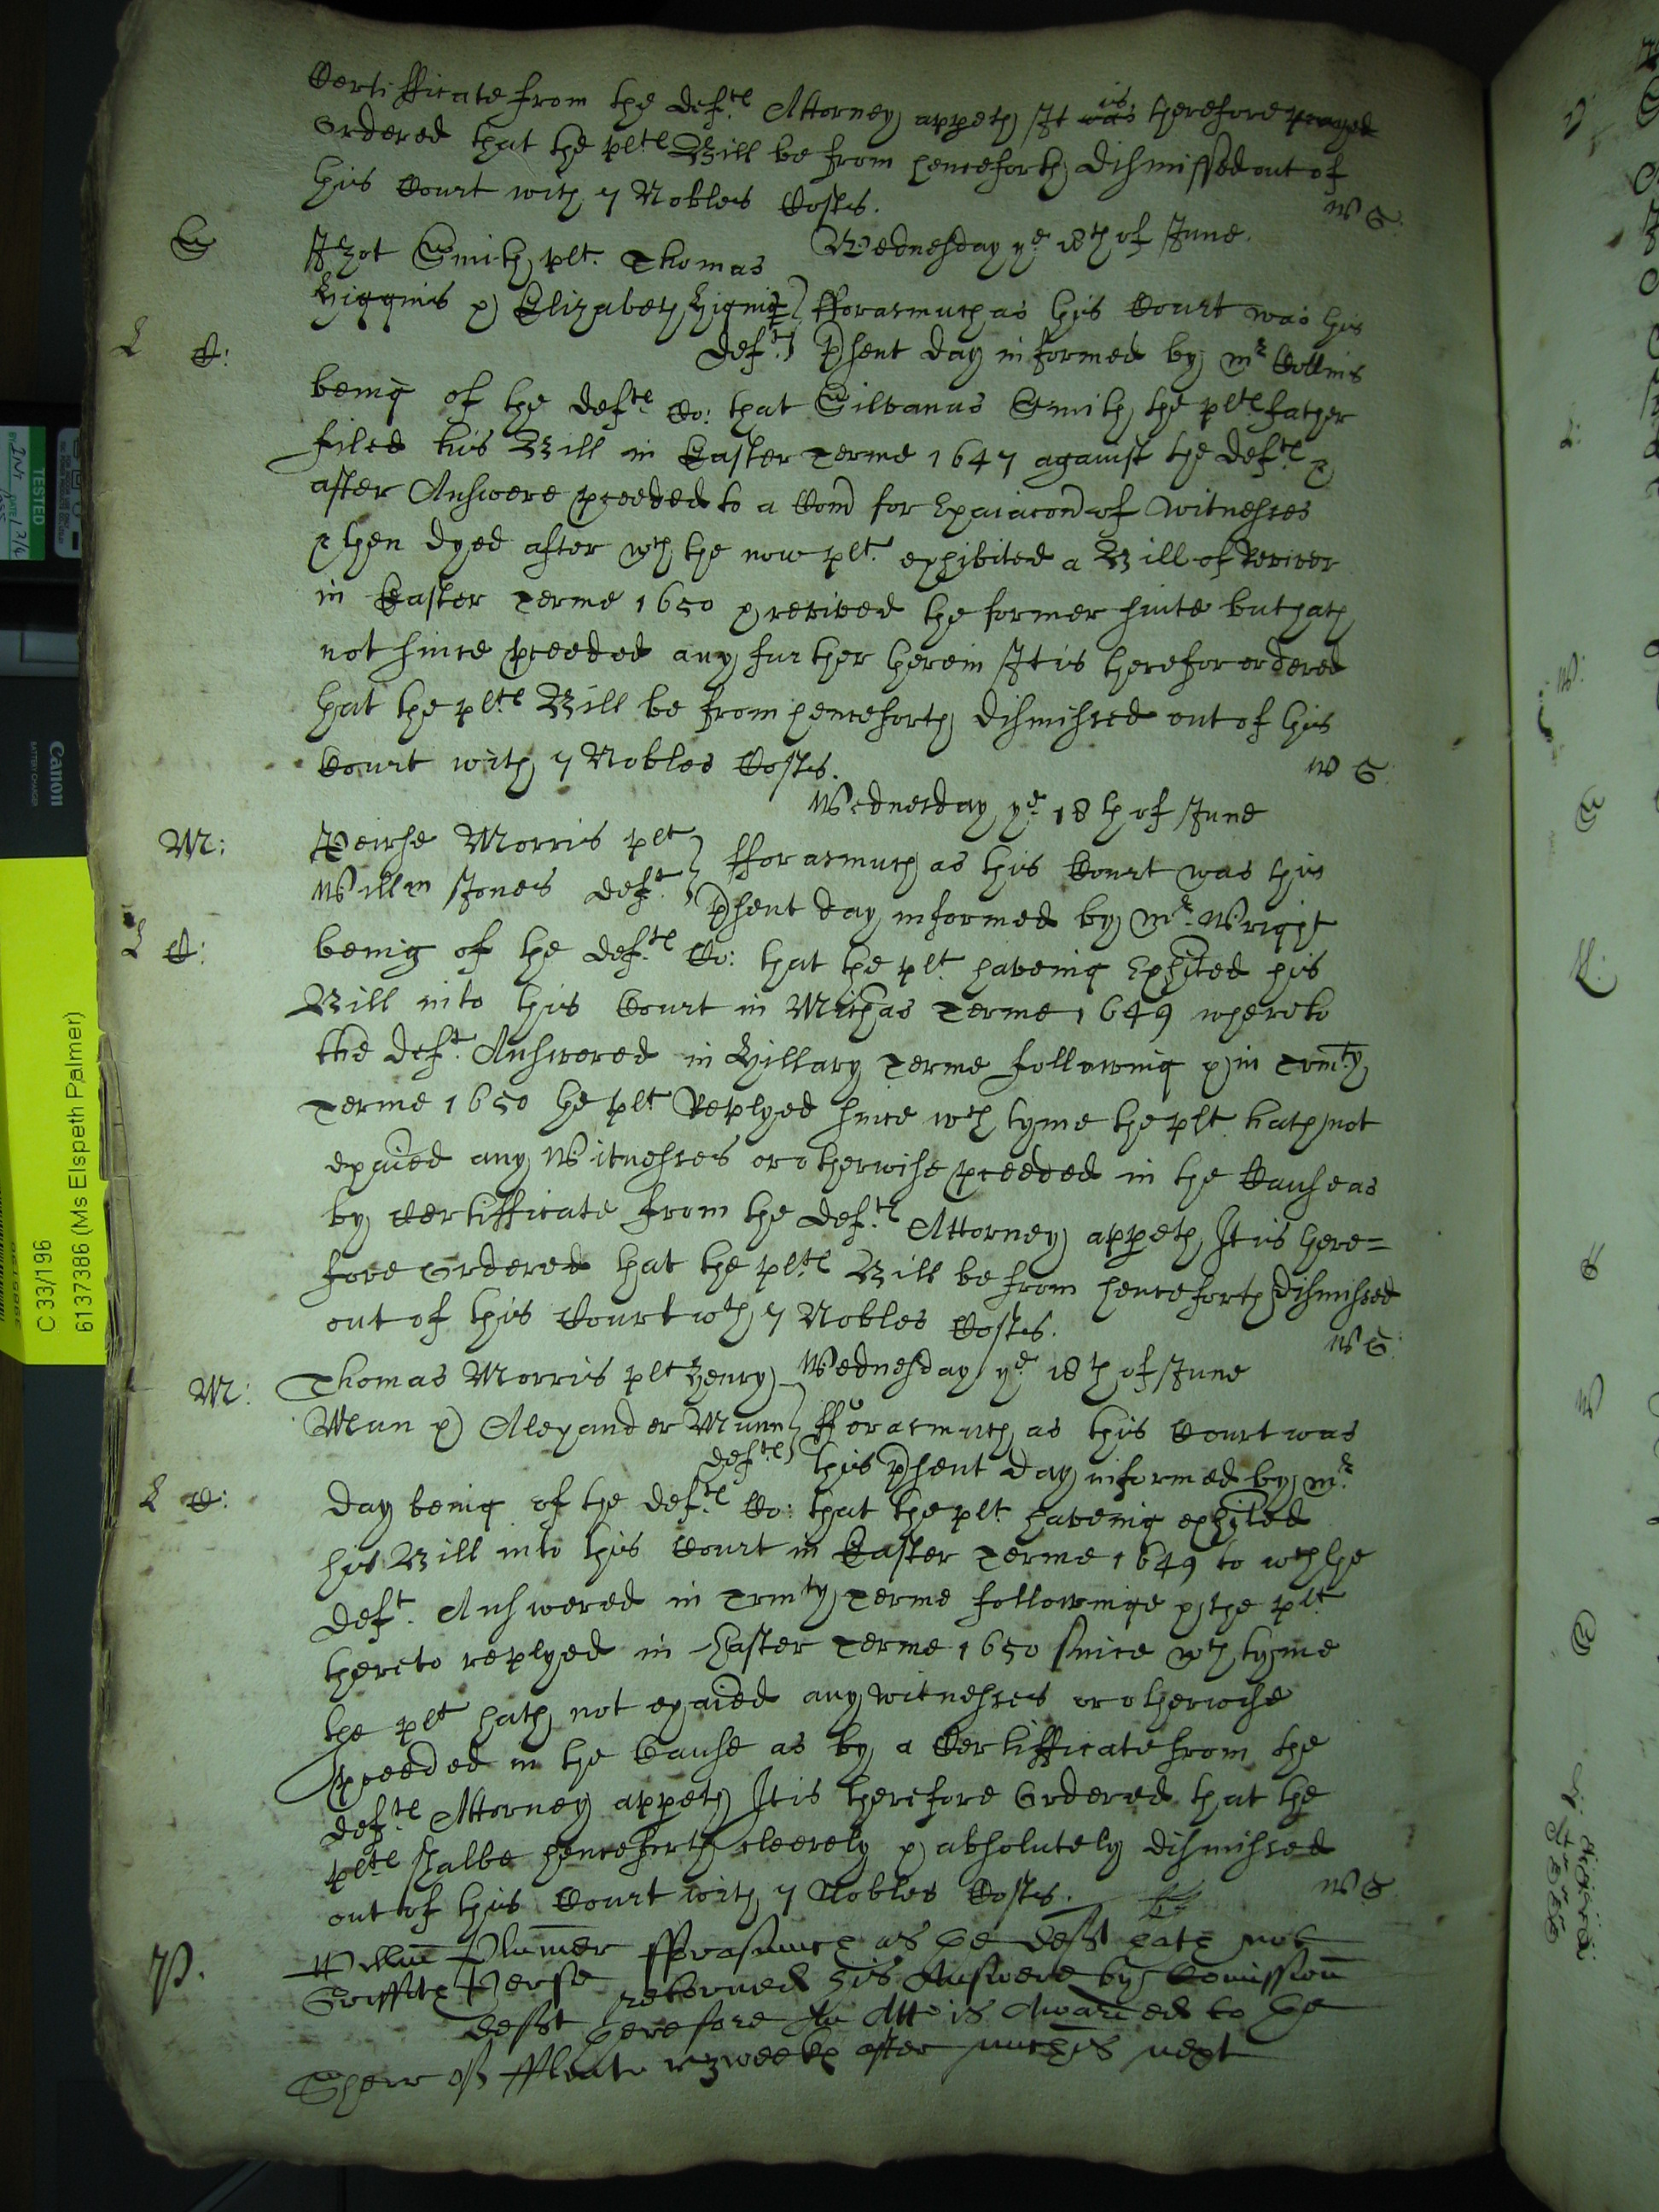 Certifficate from the deftes Attorney appeth It was is therefore prayed
Ordered that the pltes Bill be from henceforth dismissed out of
this Court with 7 Nobles Costes.
W S:
S
Wednesday ye 18th of June.
Izot Smith plt. Thomas
Higgins & Elizabeth Higins } fforasmuch as this Court was this
deftes } pñsent day informed by mr Collins
L C:
being of the deftes Co: that Silvanus Smith the pltes father
filed his Bill in Easter Terme 1647 against the deftes &
after Answere pceeded to a Com̃ for Exai͠acon̄ of witnesses
& then dyed after wch the now plt. exhibited a Bill of Revivor
in Easter Terme 1650 & revived the former suite but hath
not since pceeded any further herein It is therefor ordered
that the pltes Bill be from henceforth dismissed out of this
Court with 7 Nobles Costes.
W S:
Wednesday ye 18th of June
M:
Peirse Morris plt } fforasmuch as this Court was this
Willm Jones deft. } pñsent day informed by mr. Wright
L C:
being of the deftes Co: that the plt. haveing Exhited his
Bill into this Court in Michas Terme 1649 whereto
the deft. Answered in Hillary Terme following & in Trinty
Terme 1650 the plt Replyed since wch tyme the plt. hath not
exaied any Witnesses or otherwise pceeded in the Cause as
by Certifficate from the deftes Attorney appeth It is there=
fore Ordered that the pltes Bill be from henceforth dismissed
out of this Court wth 7 Nobles Costes.
W S:
M:
Wednesday ye 18th of June
Thomas Morris plt Henry
Mun & Alexander Munn } fforasmuch as this Court was
deftes } this pñsent day informed by mr
L C:
Day being of the deftes Co: that the plt. haveing exhited
his Bill into this Court in Easter Terme 1649 to wch the
deft. Answered in Trinty Terme followinge & the plt
thereto replyed in Easter Terme 1650 since wch tyme
the plt hath not exaied any witnesses or otherwise
pceeded in the Cause as by a Certifficate from the
deftes Attorney appeth It is therefore Ordered that the
pltes shalbe henceforth cleerely & absolutely dismissed
out of this Court with 7 Nobles Costes.
W S
P.
Willm̄ Plumer fforasmuch as the deft hath not
Griffith Perse retorned his Answere by Comission
deft therefore An Att is Awarded to the
Sher of fflint r 3 weekes after miches next
TESTED
Canon
BATTERY CHARGER
C 33/196
6137386 (Ms Elspeth Palmer)